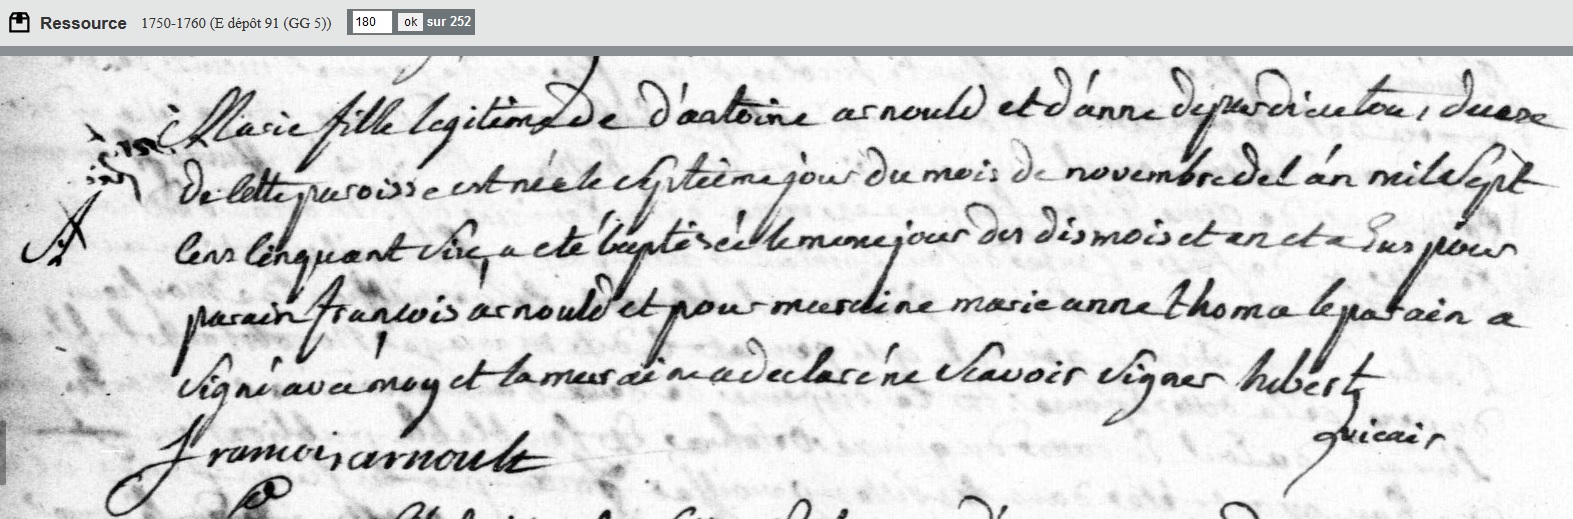 Ressource 1750-1760 (E dépôt 91 (GG 5)) 180 ok sur 252
Marie fille legitime de d'antoine arnould et d'anne
de cette paroisse est née le septième jour du mois de novembre de l'án mil sept
cens cinquant six, a eté baptisée le meme jour des dis mois et an et a eus pour
parain francois arnould et pour maraine marie anne thoma le parain a
signé avec moy et la maraine a declaré ne scavoir signer hubert
vicair
francois arnoult